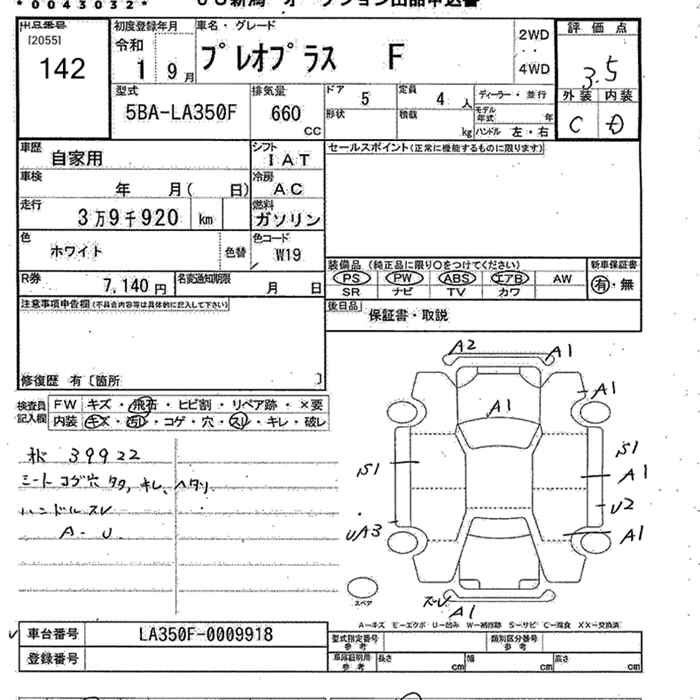 *0043032*
[2055]
142
初度登録年月
令和
1 9月
車名・グレード
プレオプラス F
2WD
4WD
評価点
3.5
外装 内装
C D
型式
5BA-LA350F
排気量
660
CC
ドア
5
定員
4 人
形状
積載
kg
ディーラー・並行
モデル年式
年
ハンドル 左・右
車歴
自家用
シフト
IAT
セールスポイント(正常に機能するものに限ります)
車検
年 月( 日)
冷房
AC
走行
3万9千920 km
燃料
ガソリン
色
ホワイト
色替
色コード
W19
装備品 (純正品に限り○をつけてください)
新車保証書
PS PW ABS エアB AW
SR ナビ TV カワ
有・無
R券
7,140円
名変通知期限
月 日
後日品
保証書・取説
注意事項申告欄(不具合内容等は具体的に記入して下さい)
修復歴 有〔箇所 〕
検査員記入欄
FW キズ・飛石・ヒビ割・リペア跡・×要
内装 キズ・汚レ・コゲ・穴・スレ・キレ・破レ
39922
シートコゲ穴
ハンドルスレ
A-U
A2
A1
A1
A1
S1
S1
A1
U2
UA3
A1
スペア
A1
A-キズ E-エクボ U-凹み W-補修跡 S-サビ C-腐食 XX-交換済
車台番号
LA350F-0009918
登録番号
型式指定番号
参考
類別区分番号
参考
参考
長さ
cm
幅
cm
高さ
cm